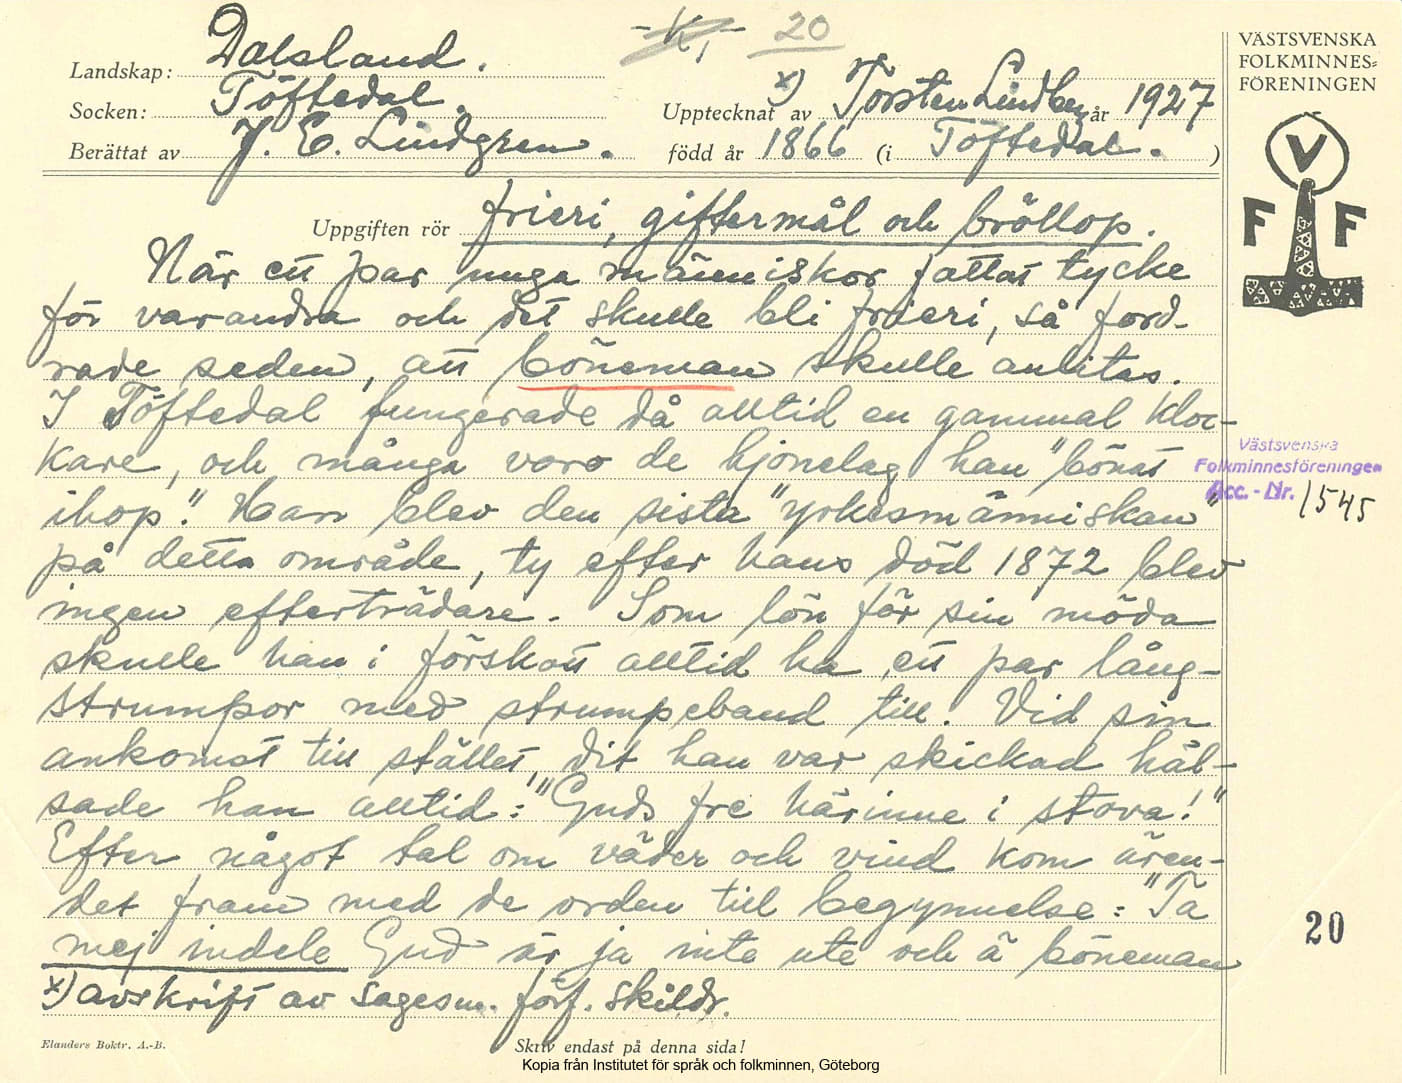 -K,- 20
VÄSTSVENSKA
FOLKMINNES=
FÖRENINGEN
V
F F
Landskap: Dalsland.
Socken: Töftedal. Upptecknat av x) Torsten Lindberg år 1927
Berättat av J. E. Lindgren. född år 1866 (i Töftedal. )
Uppgiften rör frieri, giftermål och bröllop.
När ett par unga människor fattat tycke
för varandra och det skulle bli frieri, så ford-
rade seden, att böneman skulle anlitas.
I Töftedal fungerade då alltid en gammal kloc-
kare, och många voro de hjonelag han "bönat
ihop". Han blev den sista "yrkesmänniskan"
på detta område, ty efter hans död 1872 blev
ingen efterträdare. Som lön för sin möda
skulle han i förskott alltid ha ett par lång-
strumpor med strumpeband till. Vid sin
ankomst till stället, dit han var skickad häl-
sade han alltid: "Guds fre härinne i stova!"
Efter något tal om väder och vind kom ären-
det fram med de orden till begynnelse: "Ta
mej indele Gud är ja inte ute och ä böneman
x) avskrift av sagesm. förf. skildr.
Västsvenska
Folkminnesföreningen
Acc. - Nr. 1545
20
Elanders Boktr. A.-B.
Skriv endast på denna sida!
Kopia från Institutet för språk och folkminnen, Göteborg